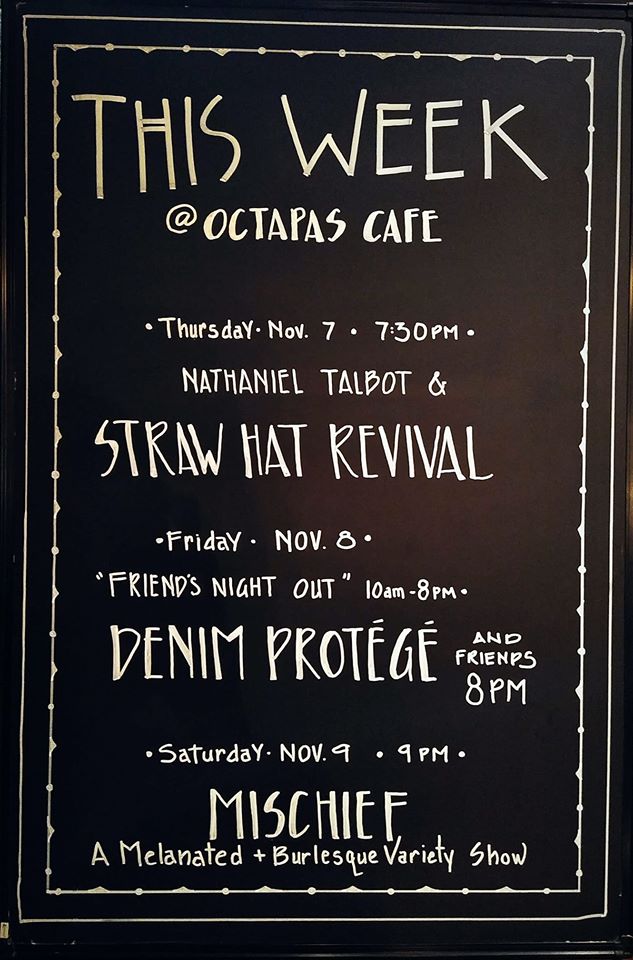 THIS WEEK
@ OCTAPAS CAFE
• Thursday • Nov. 7 • 7:30PM •
NATHANIEL TALBOT &
STRAW HAT REVIVAL
• Friday • NOV. 8 •
"FRIEND'S NIGHT OUT" 10am-8PM •
DENIM PROTÉGÉ AND FRIENDS 8PM
• Saturday • NOV. 9 • 9PM •
MISCHIEF
A Melanated + Burlesque Variety Show